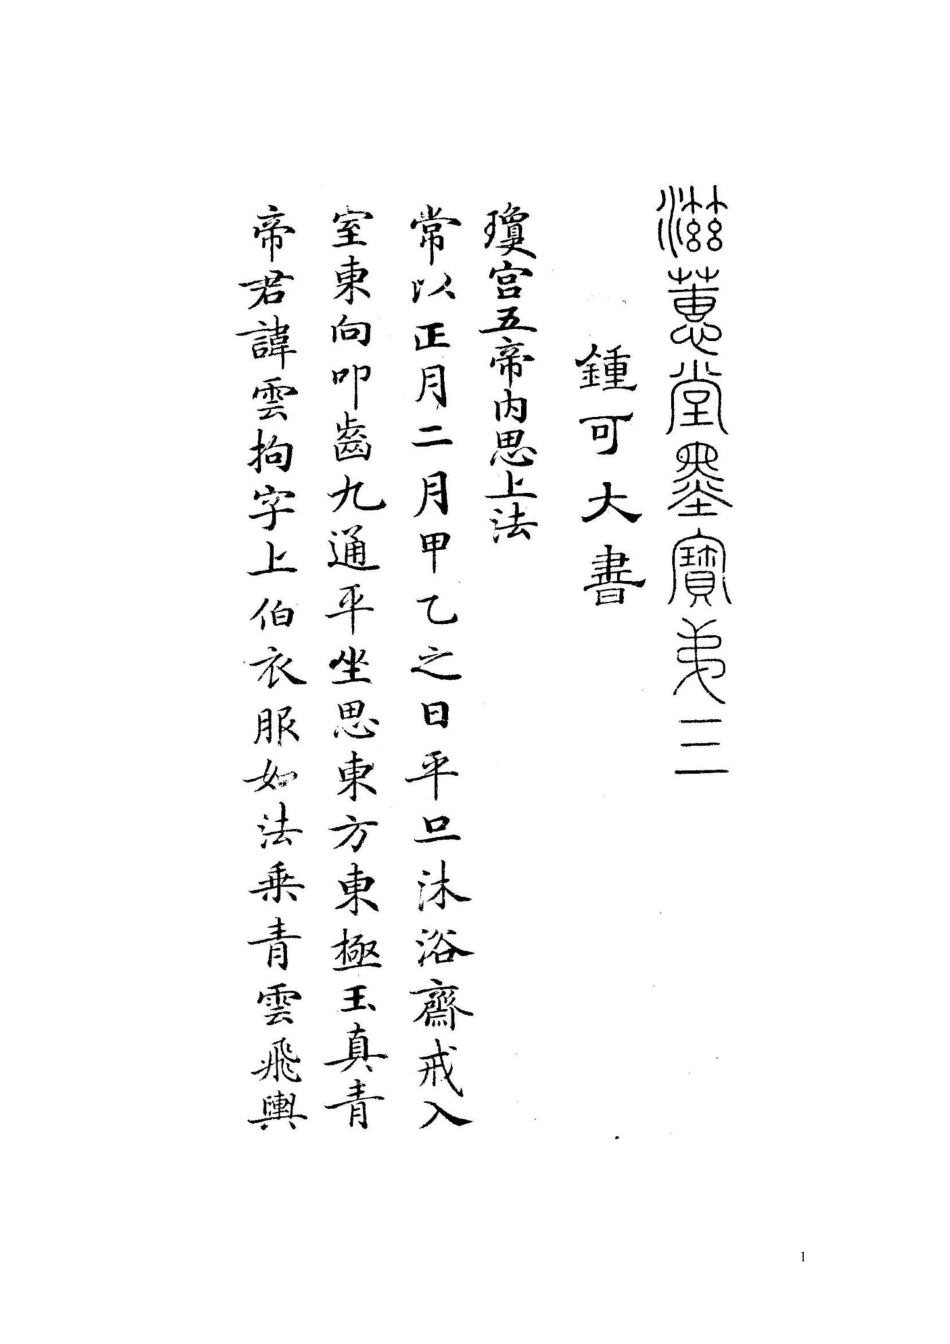 滋蕙堂墨寶弟二
鍾可大書
瓊宮五帝內思上法
常以正月二月甲乙之日平旦沐浴齋戒入
室東向叩齒九通平坐思東方東極玉真青
帝君諱雲拘字上伯衣服如法乗青雲飛輿
1